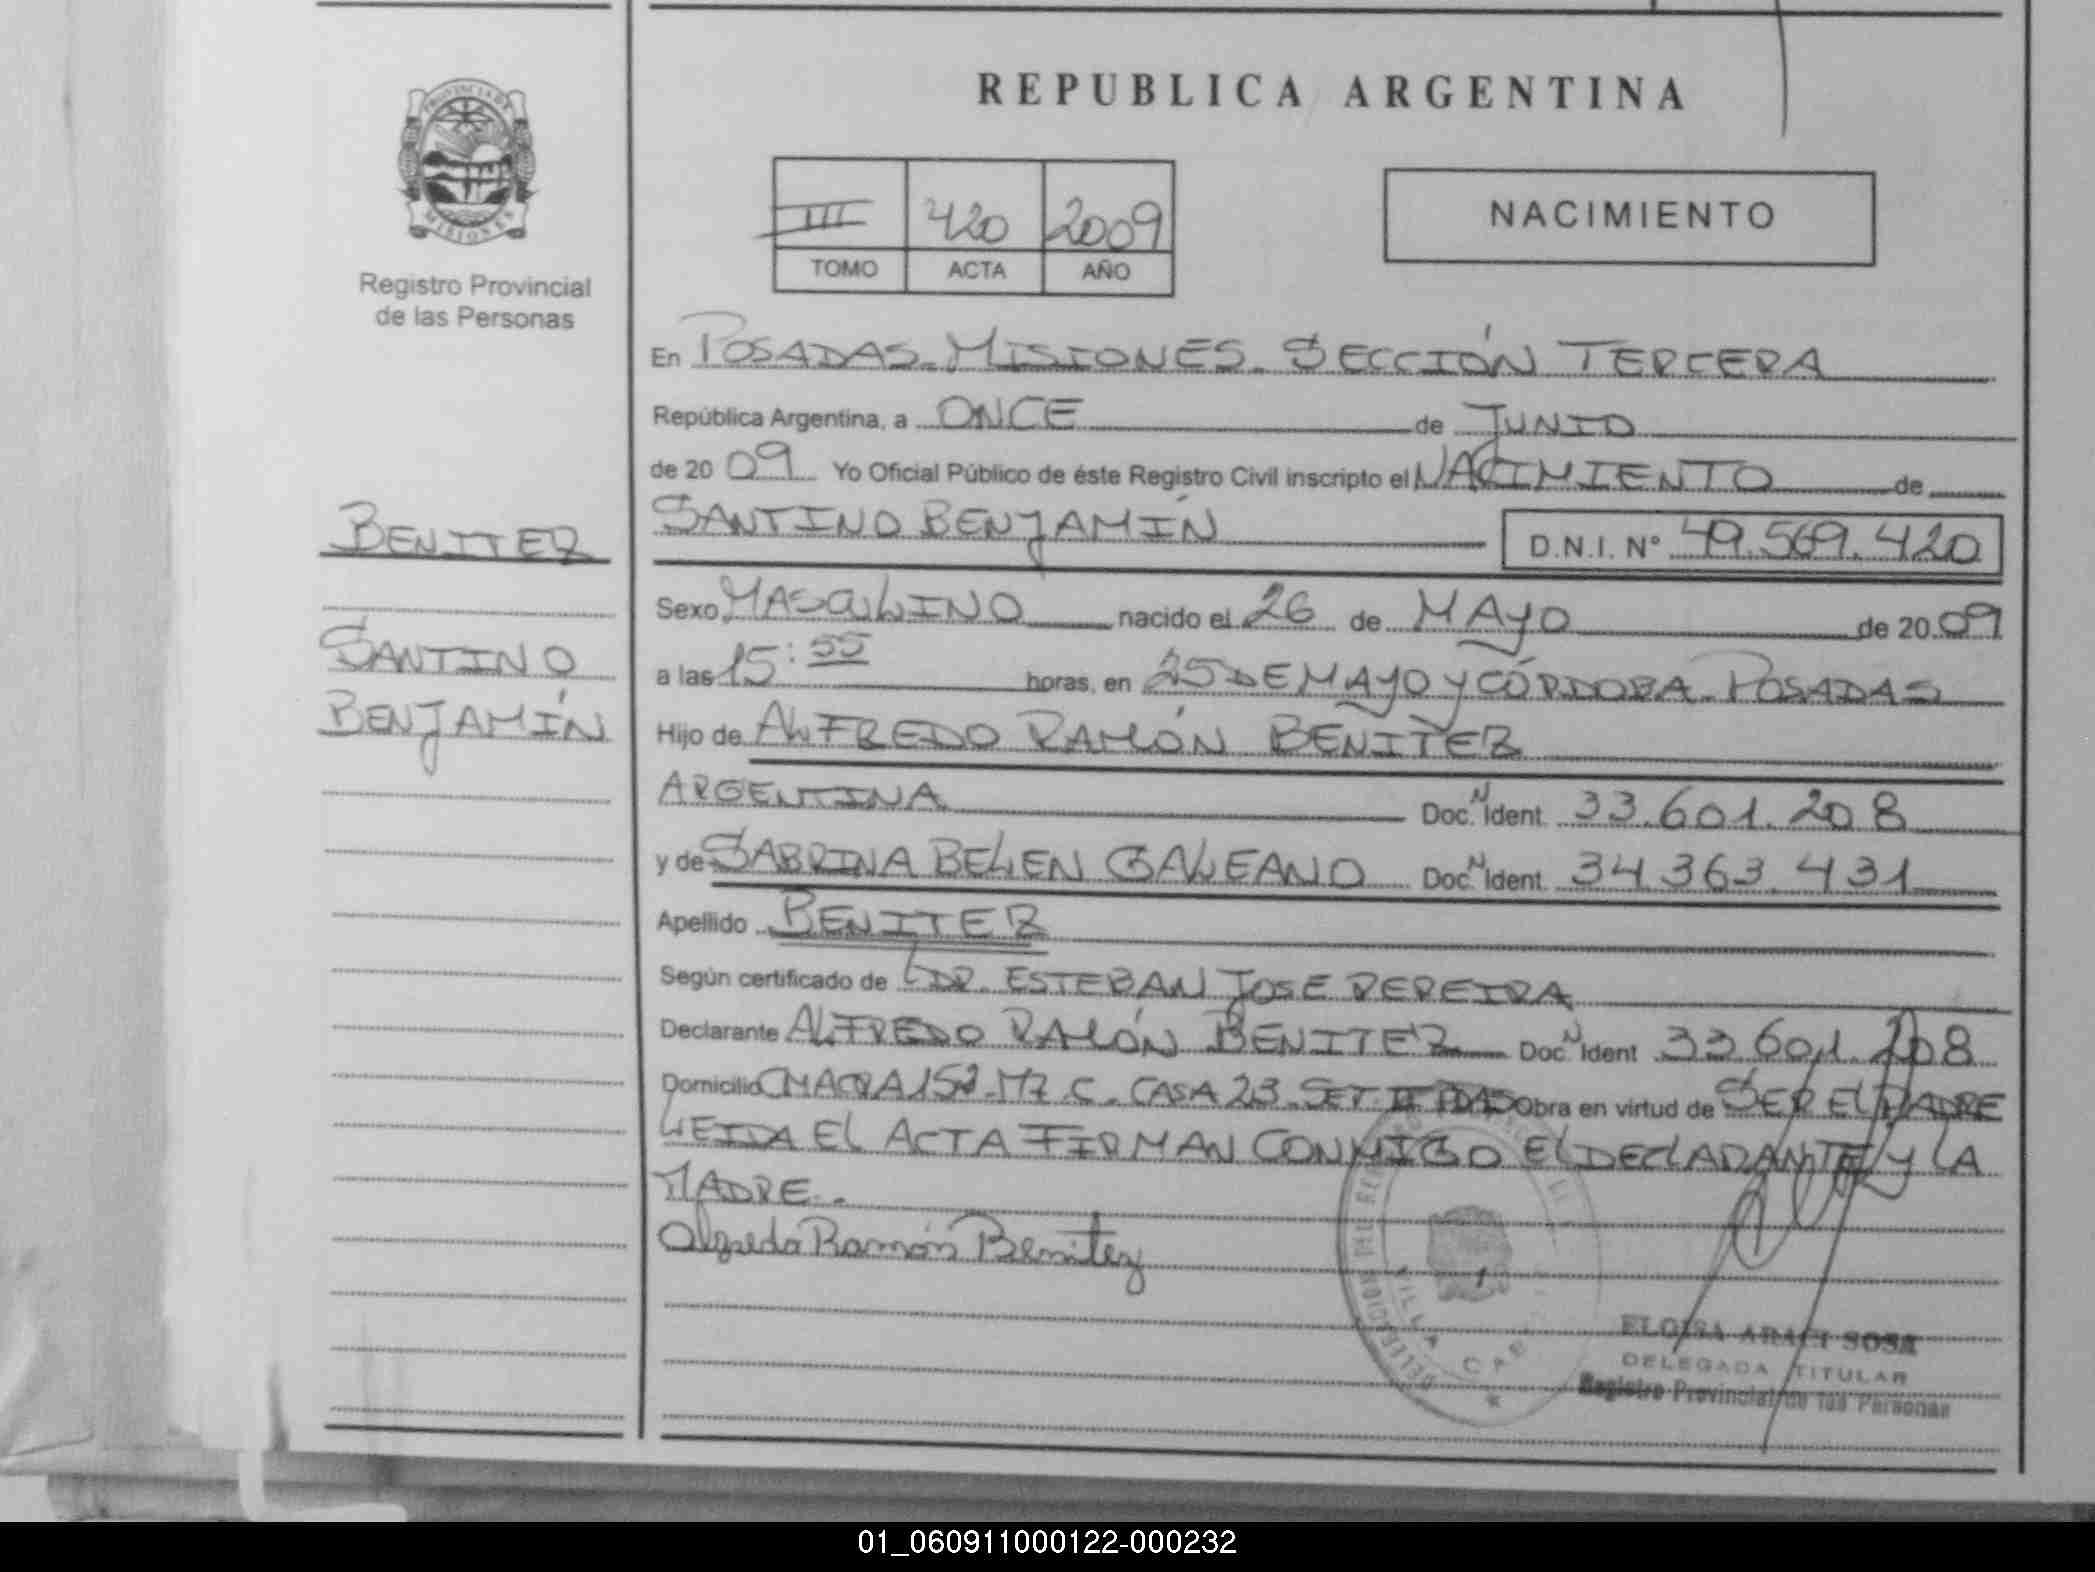 REPUBLICA ARGENTINA
PROVINCIA DE
MISIONES
Registro Provincial
de las Personas
III 420 2009
TOMO ACTA AÑO
NACIMIENTO
En POSADAS. MISIONES. SECCIÓN TERCERA
República Argentina, a ONCE de JUNIO
de 20 09 Yo Oficial Público de éste Registro Civil inscripto el NACIMIENTO de
SANTINO BENJAMÍN D.N.I. Nº 49.569.420
BENITEZ
SANTINO
BENJAMÍN
Sexo MASCULINO nacido el 26 de MAYO de 20 09
a las 15:55 horas, en 25 DE MAYO Y CÓRDOBA. POSADAS
Hijo de ALFREDO RAMÓN BENITEZ
ARGENTINA Doc. N Ident. 33.601.208
y de SABRINA BELEN GALEANO Doc. N Ident. 34.363.431
Apellido BENITEZ
Según certificado de DR. ESTEBAN JOSE PEREIRA
Declarante ALFREDO RAMÓN BENITEZ Doc. N Ident 33.601.208
Domicilio CHACRA 152. MZ C. CASA 23. Obra en virtud de SER EL PADRE
LEIDA EL ACTA FIRMAN CONMIGO EL DECLARANTE Y LA
MADRE.
Alfredo Ramón Benitez
VILLA CAB
ELOISA ARACI SOSA
DELEGADA TITULAR
Registro Provincial de las Personas
01_060911000122-000232